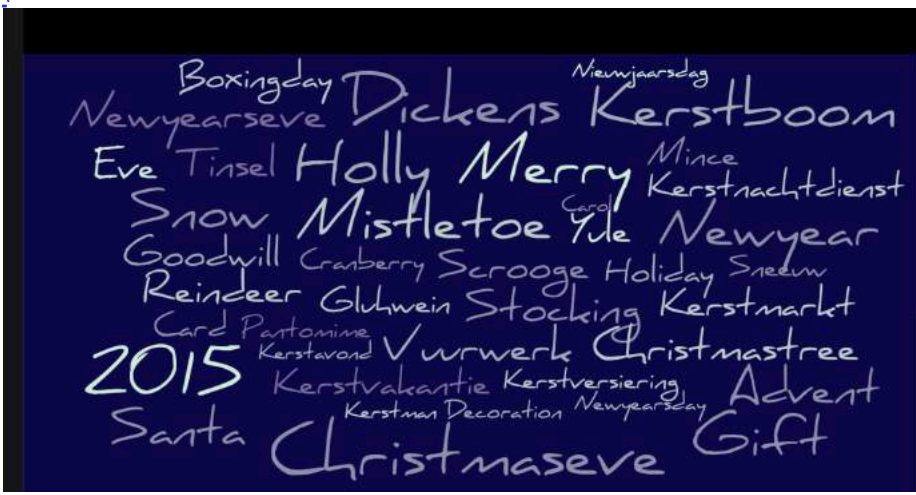 Boxingday Dickens Nieuwjaarsdag
Newyearseve Kerstboom
Eve Tinsel Holly Merry Mince
Kerstnachtdienst
Snow Mistletoe Carol Yule Newyear
Goodwill Cranberry Scrooge Holiday Sneeuw
Reindeer Gluhwein Stocking Kerstmarkt
Card Pantomime
2015 Kerstavond Vuurwerk Christmastree
Kerstvakantie Kerstversiering Advent
Kerstman Decoration Newyearsday
Santa Christmaseve Gift